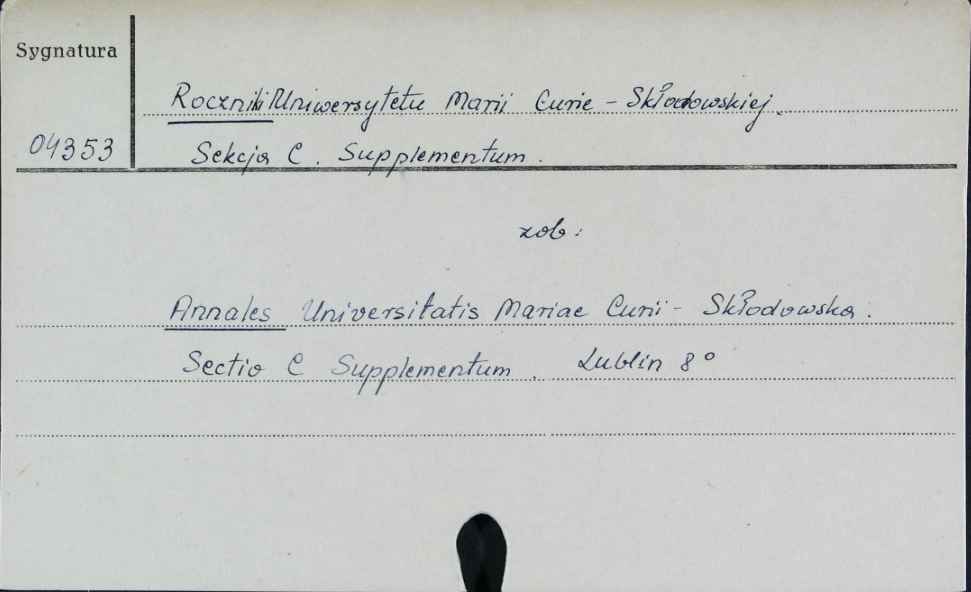 Sygnatura
Roczniki Uniwersytetu Marii Curie - Skłodowskiej.
04353
Sekcja C. Supplementum.
zob:
Annales Universitatis Mariae Curii - Skłodowska.
Sectio C Supplementum. Lublin 8°